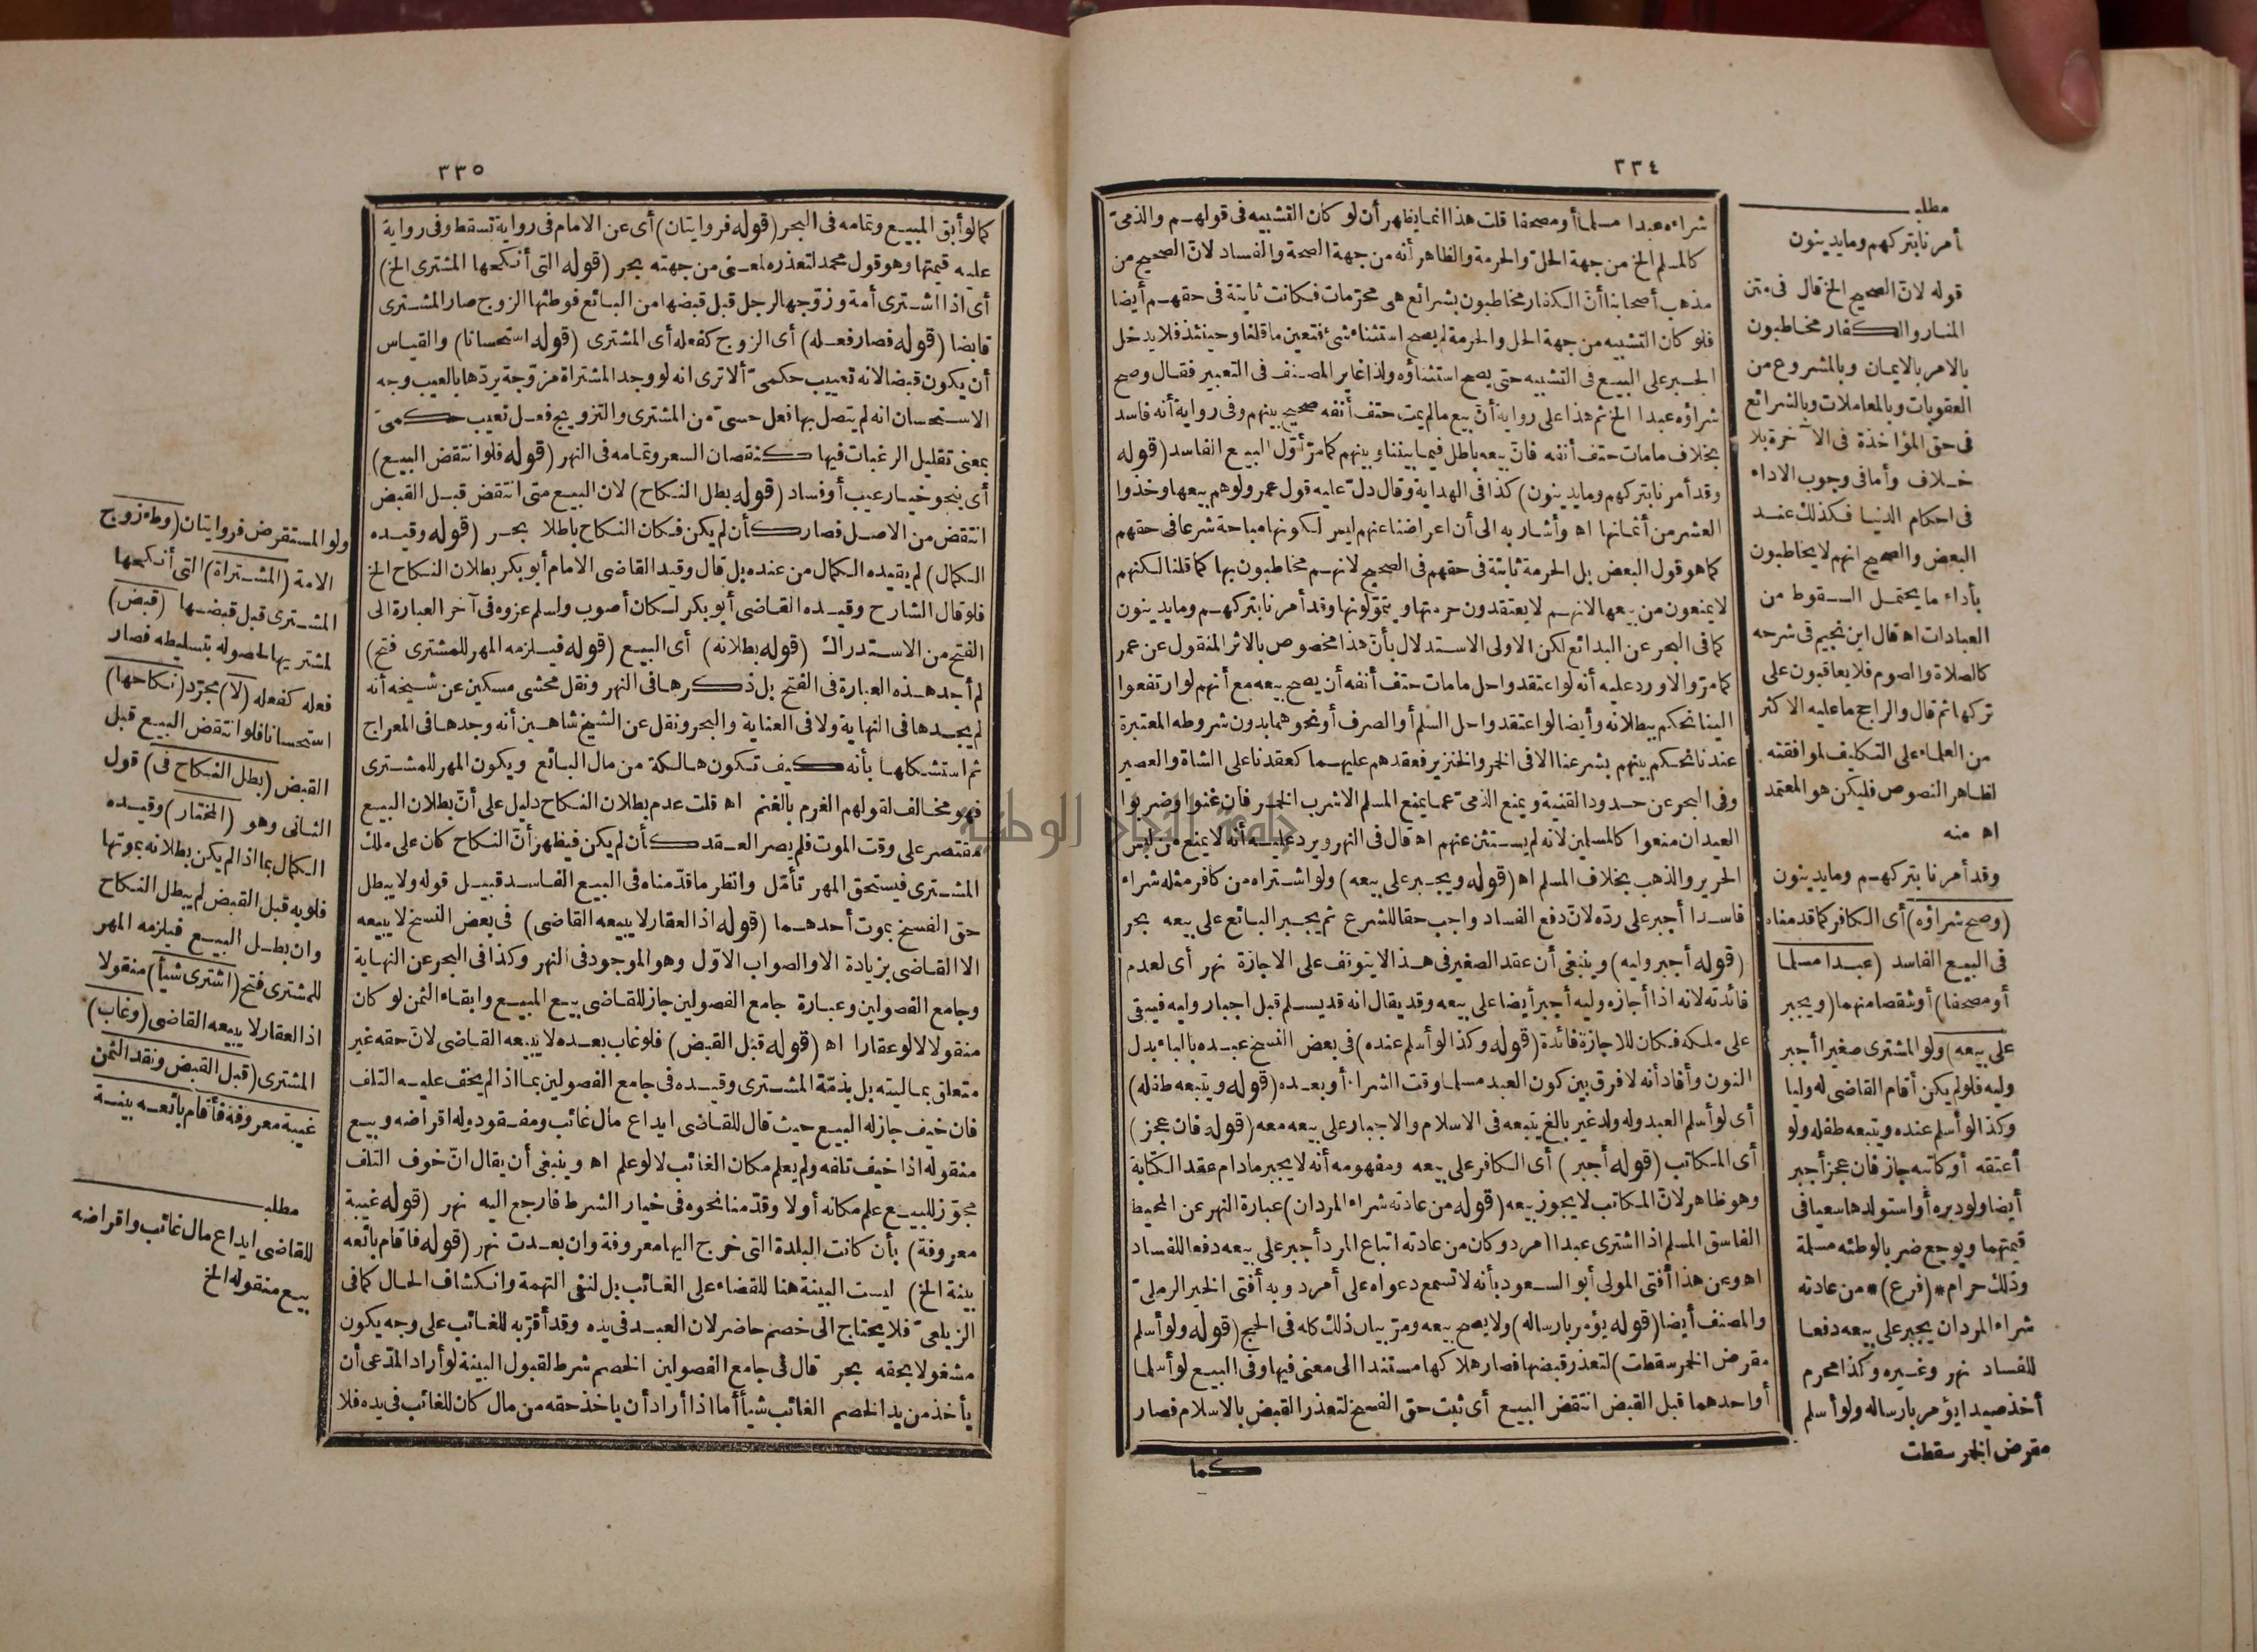 ٣٣٤
مطلب
أمرنا بتركهم وما يدينون
قوله لانّ الصحيح الخ قال فى متن
المنار والكفار مخاطبون
بالامر بالايمان وبالمشروع من
العقوبات وبالمعاملات وبالشرائع
فى حق المؤاخذة فى الآخرة بلا
خلاف وأما فى وجوب الاداء
فى احكام الدنيا فكذلك عند
البعض والصحيح انهم لا يخاطبون
بأداء ما يحتمل السقوط من
العبادات اه قال ابن نجيم فى شرحه
كالصلاة والصوم فلا يعاقبون على
تركها ثم قال والراجح ما عليه الاكثر
من العلماء على التكليف لموافقته
لظاهر النصوص فليكن هو المعتمد
اه منه
وقد أمرنا بتركهم وما يدينون
(وصح شراؤه) أى الكافر كما قدمناه
فى البيع الفاسد (عبدا مسلما
أو مصحفا) أو شقصا منهما (ويجبر
على بيعه) ولو المشترى صغيرا أجبر
وليه فلو لم يكن أقام القاضى له وليا
وكذا لو أسلم عنده ويتبعه طفله ولو
أعتقه أو كاتبه جاز فان عجز أجبر
أيضا ولو دبره أو استولدها سعيا فى
قيمتهما ويوجع ضربا لوطئه مسلمة
وذلك حرام * (فرع) * من عادته
شراء المردان يجبر على بيعه دفعا
للفساد نهر وغيره وكذا محرم
أخذ صيدا يؤمر بارساله ولو أسلم
مقرض الخمر سقطت
شراءه عبدا مسلما أو مصحفا قلت هذا انما يظهر أن لو كان التشبيه فى قولهم والذمىّ
كالمسلم الخ من جهة الحلّ والحرمة والظاهر أنه من جهة الصحة والفساد لانّ الصحيح من
مذهب أصحابنا أنّ الكفار مخاطبون بشرائع هى محرّمات فكانت ثابتة فى حقهم أيضا
فلو كان التشبيه من جهة الحل والحرمة لم يصح استثناء شئ فتعين ما قلنا وحينئذ فلا يدخل
الجبر على البيع فى التشبيه حتى يصح استثناؤه ولذا غاير المصنف فى التعبير فقال وصح
شراؤه عبدا الخ ثم هذا على رواية أنّ بيع ما لم يمت حتف أنفه صحيح بينهم وفى رواية أنه فاسد
بخلاف ما مات حتف أنفه فانّ بيعه باطل فيما بيننا وبينهم كما مرّ أوّل البيع الفاسد (قوله
وقد أمرنا بتركهم وما يدينون) كذا فى الهداية وقال دلّ عليه قول عمر ولوهم بيعها وخذوا
العشر من أثمانها اه وأشار به الى أن اعراضنا عنهم ليس لكونها مباحة شرعا فى حقهم
كما هو قول البعض بل الحرمة ثابتة فى حقهم فى الصحيح لانهم مخاطبون بها كما قلنا لكنهم
لا يمنعون من بيعها لانهم لا يعتقدون حرمتها ويتموّلونها وقد أمرنا بتركهم وما يدينون
كما فى البحر عن البدائع لكن الاولى الاستدلال بأنّ هذا مخصوص بالاثر المنقول عن عمر
كما مرّ والا ورد عليه أنه لو اعتقدوا حل ما مات حتف أنفه أن يصح بيعه مع أنهم لو ارتفعوا
الينا نحكم ببطلانه وأيضا لو اعتقدوا حل السلم أو الصرف أو نحوهما بدون شروطه المعتبرة
عندنا نحكم بينهم بشرعنا الا فى الخمر والخنزير فعقدهم عليهما كعقدنا على الشاة والعصير
وفى البحر عن حدود القنية ويمنع الذمىّ عما يمنع المسلم الا شرب الخمر فان غنوا وضربوا
العيدان منعوا كالمسلمين لانه لم يستثن عنهم اه قال فى النهر ويرد عليه أنه لا يمنع من لبس
الحرير والذهب بخلاف المسلم اه (قوله ويجبر على بيعه) ولو اشتراه من كافر مثله شراء
فاسدا أجبر على ردّه لانّ دفع الفساد واجب حقا للشرع ثم يجبر البائع على بيعه بحر
(قوله أجبر وليه) وينبغى أن عقد الصغير فى هذا لا يتوقف على الاجازة نهر أى لعدم
فائدته لانه اذا أجازه وليه أجبر أيضا على بيعه وقد يقال انه قد يسلم قبل اجبار وليه فيبقى
على ملكه فكان للاجازة فائدة (قوله وكذا لو أسلم عنده) فى بعض النسخ عبده بالباء بدل
النون وأفاد أنه لا فرق بين كون العبد مسلما وقت الشراء أو بعده (قوله ويتبعه طفله)
أى لو أسلم العبد وله ولد غير بالغ يتبعه فى الاسلام والاجبار على بيعه معه (قوله فان عجز)
أى المكاتب (قوله أجبر) أى الكافر على بيعه ومفهومه أنه لا يجبر ما دام عقد الكتابة
وهو ظاهر لانّ المكاتب لا يجوز بيعه (قوله من عادته شراء المردان) عبارة النهر عن المحيط
الفاسق المسلم اذا اشترى عبدا أمرد وكان من عادته اتباع المرد أجبر على بيعه دفعا للفساد
اه وعن هذا أفتى المولى أبو السعود بأنه لا تسمع دعواه على أمرد وبه أفتى الخير الرملىّ
والمصنف أيضا (قوله يؤمر بارساله) ولا يصح بيعه ومرّ بيان ذلك كله فى الحج (قوله ولو أسلم
مقرض الخمر سقطت) لتعذر قبضها فصار هلاكها مستندا الى معنى فيها وفى البيع لو أسلما
أو احدهما قبل القبض انتقض البيع أى ثبت حق الفسخ لتعذر القبض بالاسلام فصار
كما
٣٣٥
كما لو أبق المبيع وتمامه فى البحر (قوله فروايتان) أى عن الامام فى رواية تسقط وفى رواية
عليه قيمتها وهو قول محمد لتعذره لمعنى من جهته بحر (قوله التى أنكحها المشترى الخ)
أى اذا اشترى أمة وزوّجها لرجل قبل قبضها من البائع فوطئها الزوج صار المشترى
قابضا (قوله فصار فعله) أى الزوج كفعله أى المشترى (قوله استحسانا) والقياس
أن يكون قبضا لانه تعييب حكمىّ ألا ترى انه لو وجد المشتراة مزوّجة يردّها بالعيب وجه
الاستحسان انه لم يتصل بها فعل حسىّ من المشترى والتزويج فعل تعيب حكمىّ
بمعنى تقليل الرغبات فيها كنقصان السعر وتمامه فى النهر (قوله فلو انتقض البيع)
أى بنحو خيار عيب أو فساد (قوله بطل النكاح) لان البيع متى انتقض قبل القبض
انتقض من الاصل فصار كأن لم يكن فكان النكاح باطلا بحر (قوله وقيده
الكمال) لم يقيده الكمال من عنده بل قال وقيد القاضى الامام أبو بكر بطلان النكاح الخ
فلو قال الشارح وقيده القاضى أبو بكر لكان أصوب ولسلم عزوه فى آخر العبارة الى
الفتح من الاستدراك (قوله بطلانه) أى البيع (قوله فيلزمه المهر للمشترى فتح)
لم أجد هذه العبارة فى الفتح بل ذكرها فى النهر ونقل محشى مسكين عن شيخه أنه
لم يجدها فى النهاية ولا فى العناية والبحر ونقل عن الشيخ شاهين أنه وجدها فى المعراج
ثم استشكلها بأنه كيف تكون هالكة من مال البائع ويكون المهر للمشترى
فهو مخالف لقولهم الغرم بالغنم اه قلت عدم بطلان النكاح دليل على أنّ بطلان البيع
مقتصر على وقت الموت فلم يصر العقد كأن لم يكن فيظهر أنّ النكاح كان على ملك
المشترى فيستحق المهر تأمّل وانظر ما قدّمناه فى البيع الفاسد قبيل قوله ولا يبطل
حق الفسخ بموت أحدهما (قوله اذ العقار لا يبيعه القاضى) فى بعض النسخ لا يبيعه
الا القاضى بزيادة الا والصواب الاوّل وهو الموجود فى النهر وكذا فى البحر عن النهاية
وجامع الفصولين وعبارة جامع الفصولين جاز للقاضى بيع المبيع وايفاء الثمن لو كان
منقولا لا لو عقارا اه (قوله قبل القبض) فلو غاب بعده لا يبيعه القاضى لانّ حقه غير
متعلق بماليته بل بذمّة المشترى وقيده فى جامع الفصولين بما اذا لم يخف عليه التلف
فان خيف جاز له البيع حيث قال للقاضى ايداع مال غائب ومفقود وله اقراضه وبيع
منقوله اذا خيف تلفه ولم يعلم مكان الغائب لا لو علم اه وينبغى أن يقال انّ خوف التلف
مجوّز للبيع علم مكانه أو لا وقدّمنا نحوه فى خيار الشرط فارجع اليه نهر (قوله غيبة
معروفة) بأن كانت البلدة التى خرج اليها معروفة وان بعدت نهر (قوله فاقام بائعه
بينة الخ) ليست البينة هنا للقضاء على الغائب بل لنفى التهمة وانكشاف الحال كما فى
الزيلعىّ فلا يحتاج الى خصم حاضر لان العبد فى يده وقد أقرّ به للغائب على وجه يكون
مشغولا بحقه بحر قال فى جامع الفصولين الخصم شرط لقبول البينة لو أراد المدّعى أن
يأخذ من يد الخصم الغائب شيأ أما اذا أراد أن يأخذ حقه من مال كان للغائب فى يده فلا
ولو المستقرض فروايتان (وطء زوج
الامة (المشتراة) التى أنكحها
المشترى قبل قبضها (قبض)
لمشتريها لحصوله بتسليطه فصار
فعله كفعله (لا) مجرّد (نكاحها)
استحسانا فلو انتقض البيع قبل
القبض (بطل النكاح فى) قول
الثانى وهو (المختار) وقيده
الكمال بما اذا لم يكن بطلانه بموتها
فلو به قبل القبض لم يبطل النكاح
وان بطل البيع فيلزمه المهر
للمشترى فتح (اشترى شيأ) منقولا
اذ العقار لا يبيعه القاضى (وغاب)
المشترى (قبل القبض ونقد الثمن
غيبة معروفة فأقام بائعه بينة
مطلب
للقاضى ايداع مال غائب واقراضه
بيع منقوله الخ